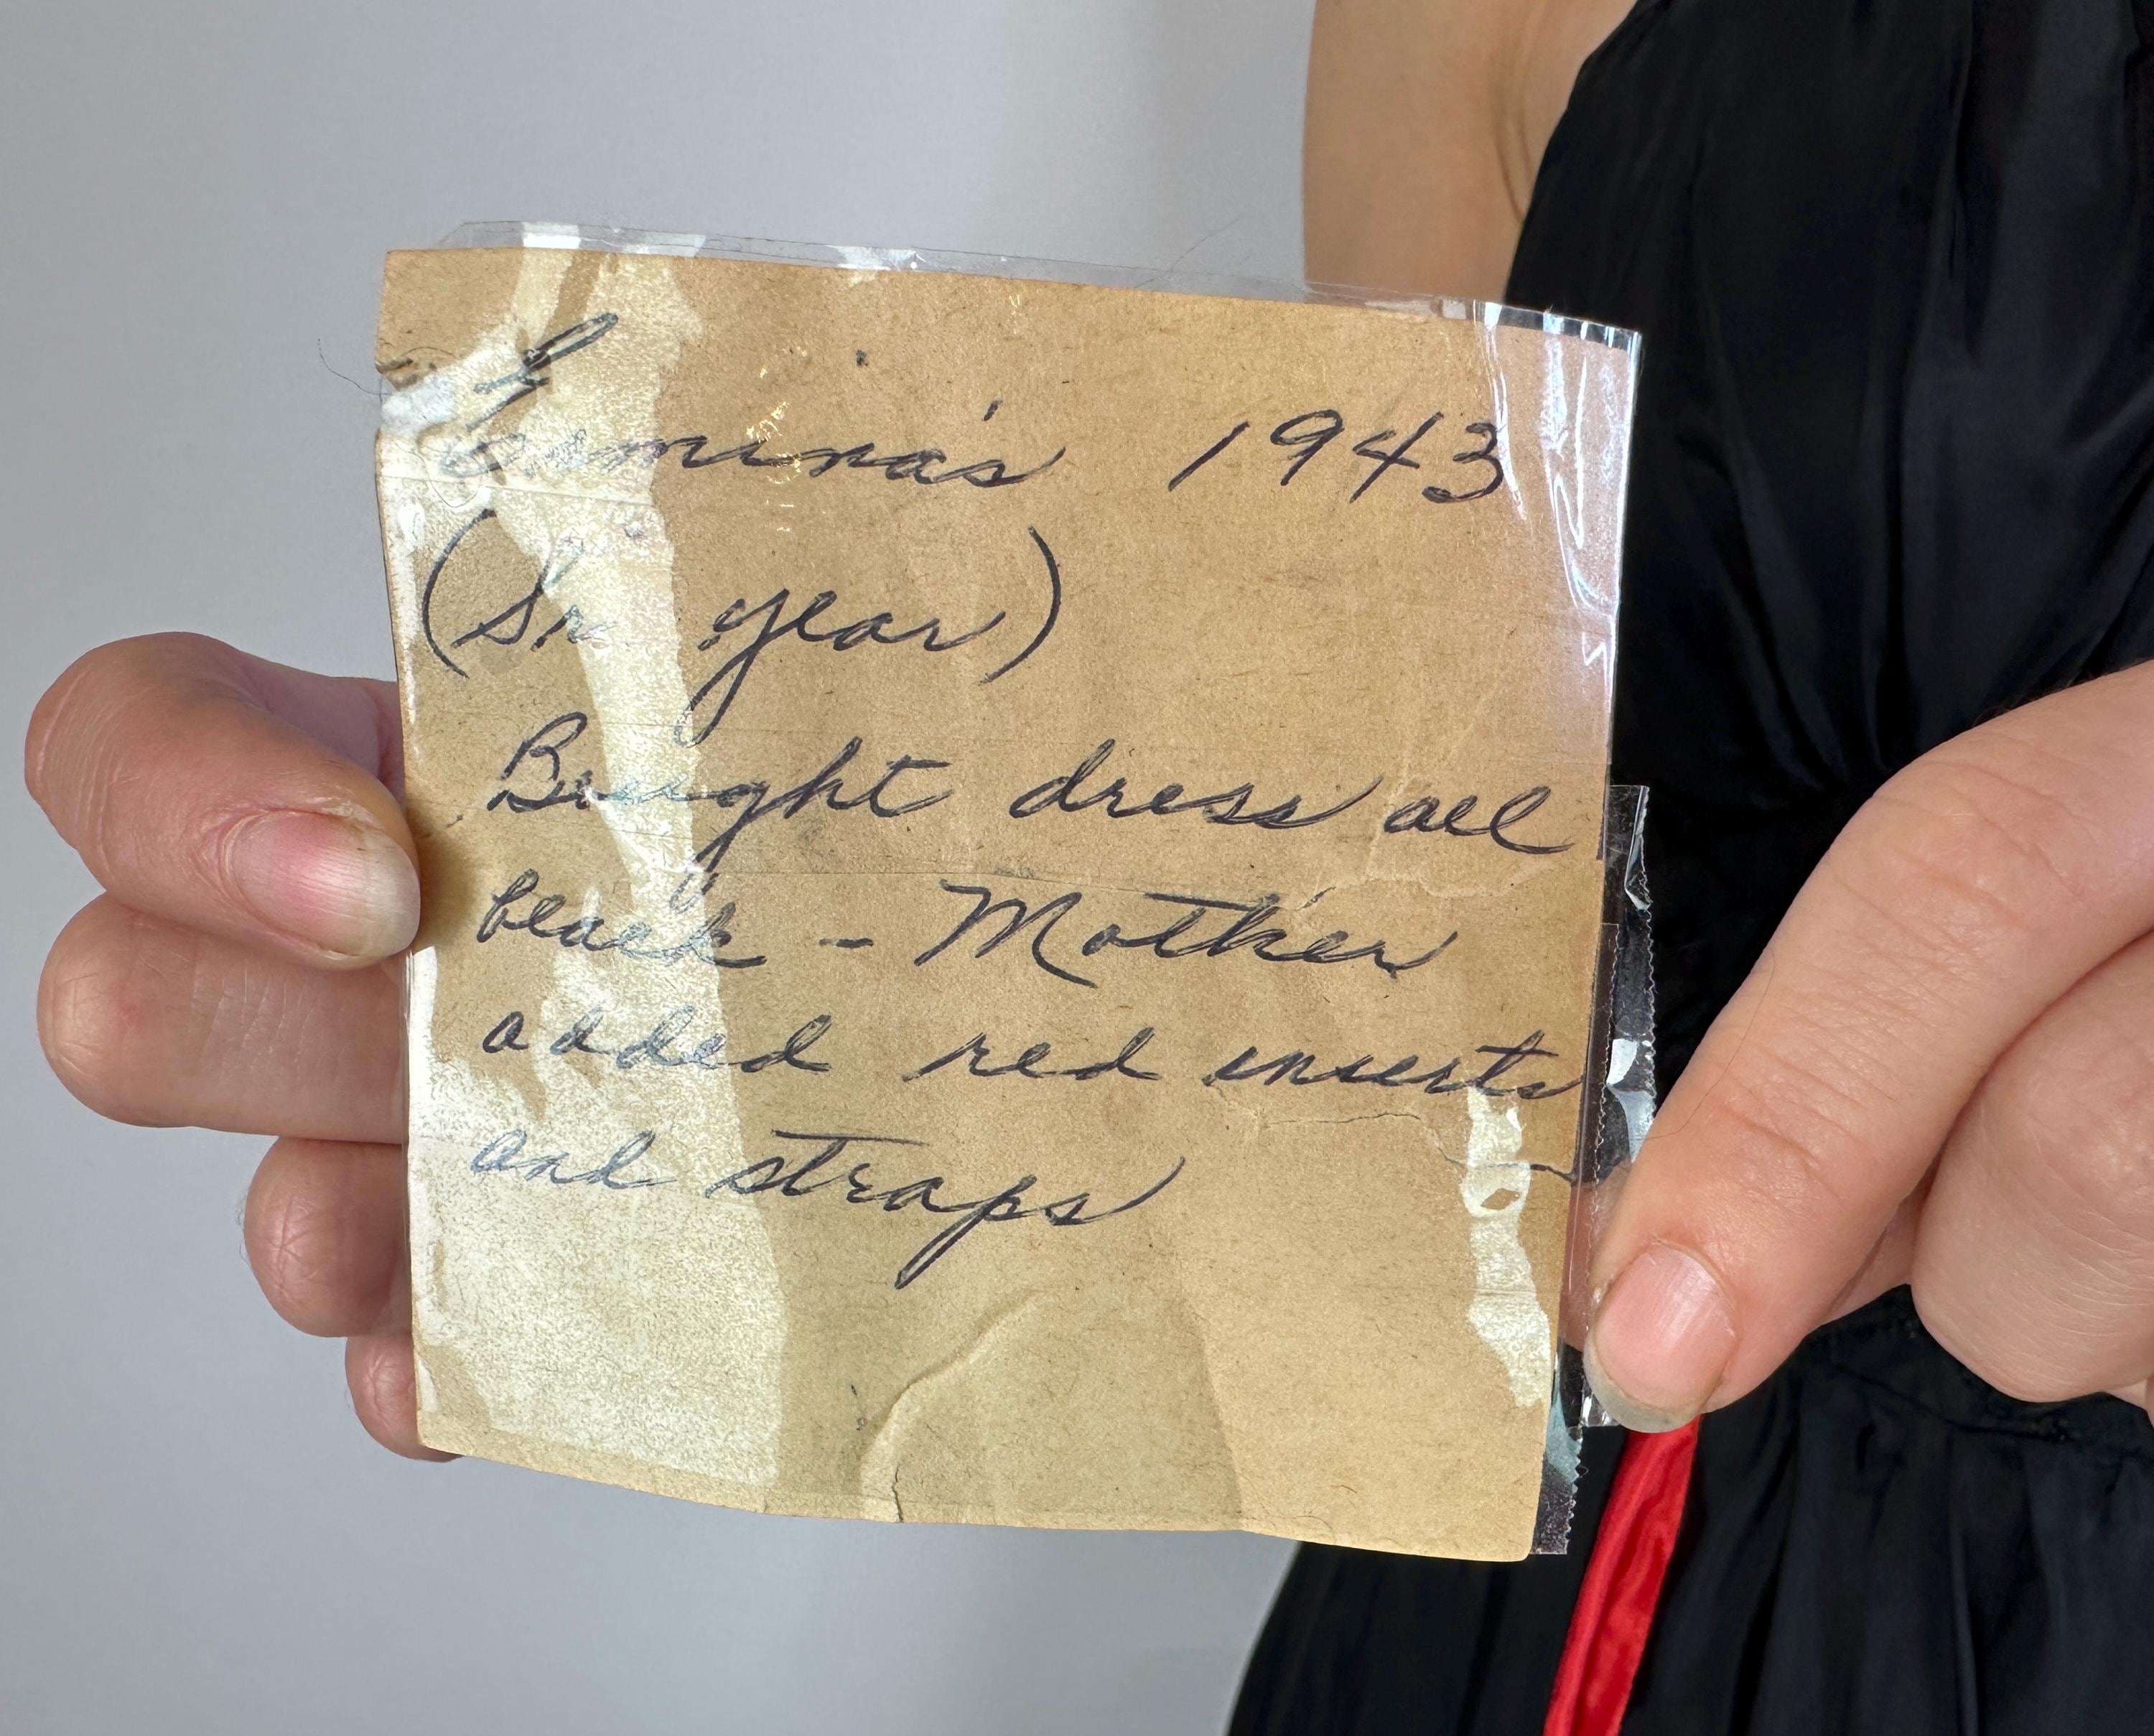 1943
(Sr year)
Bought dress all
black - Mother
added red inserts
and straps